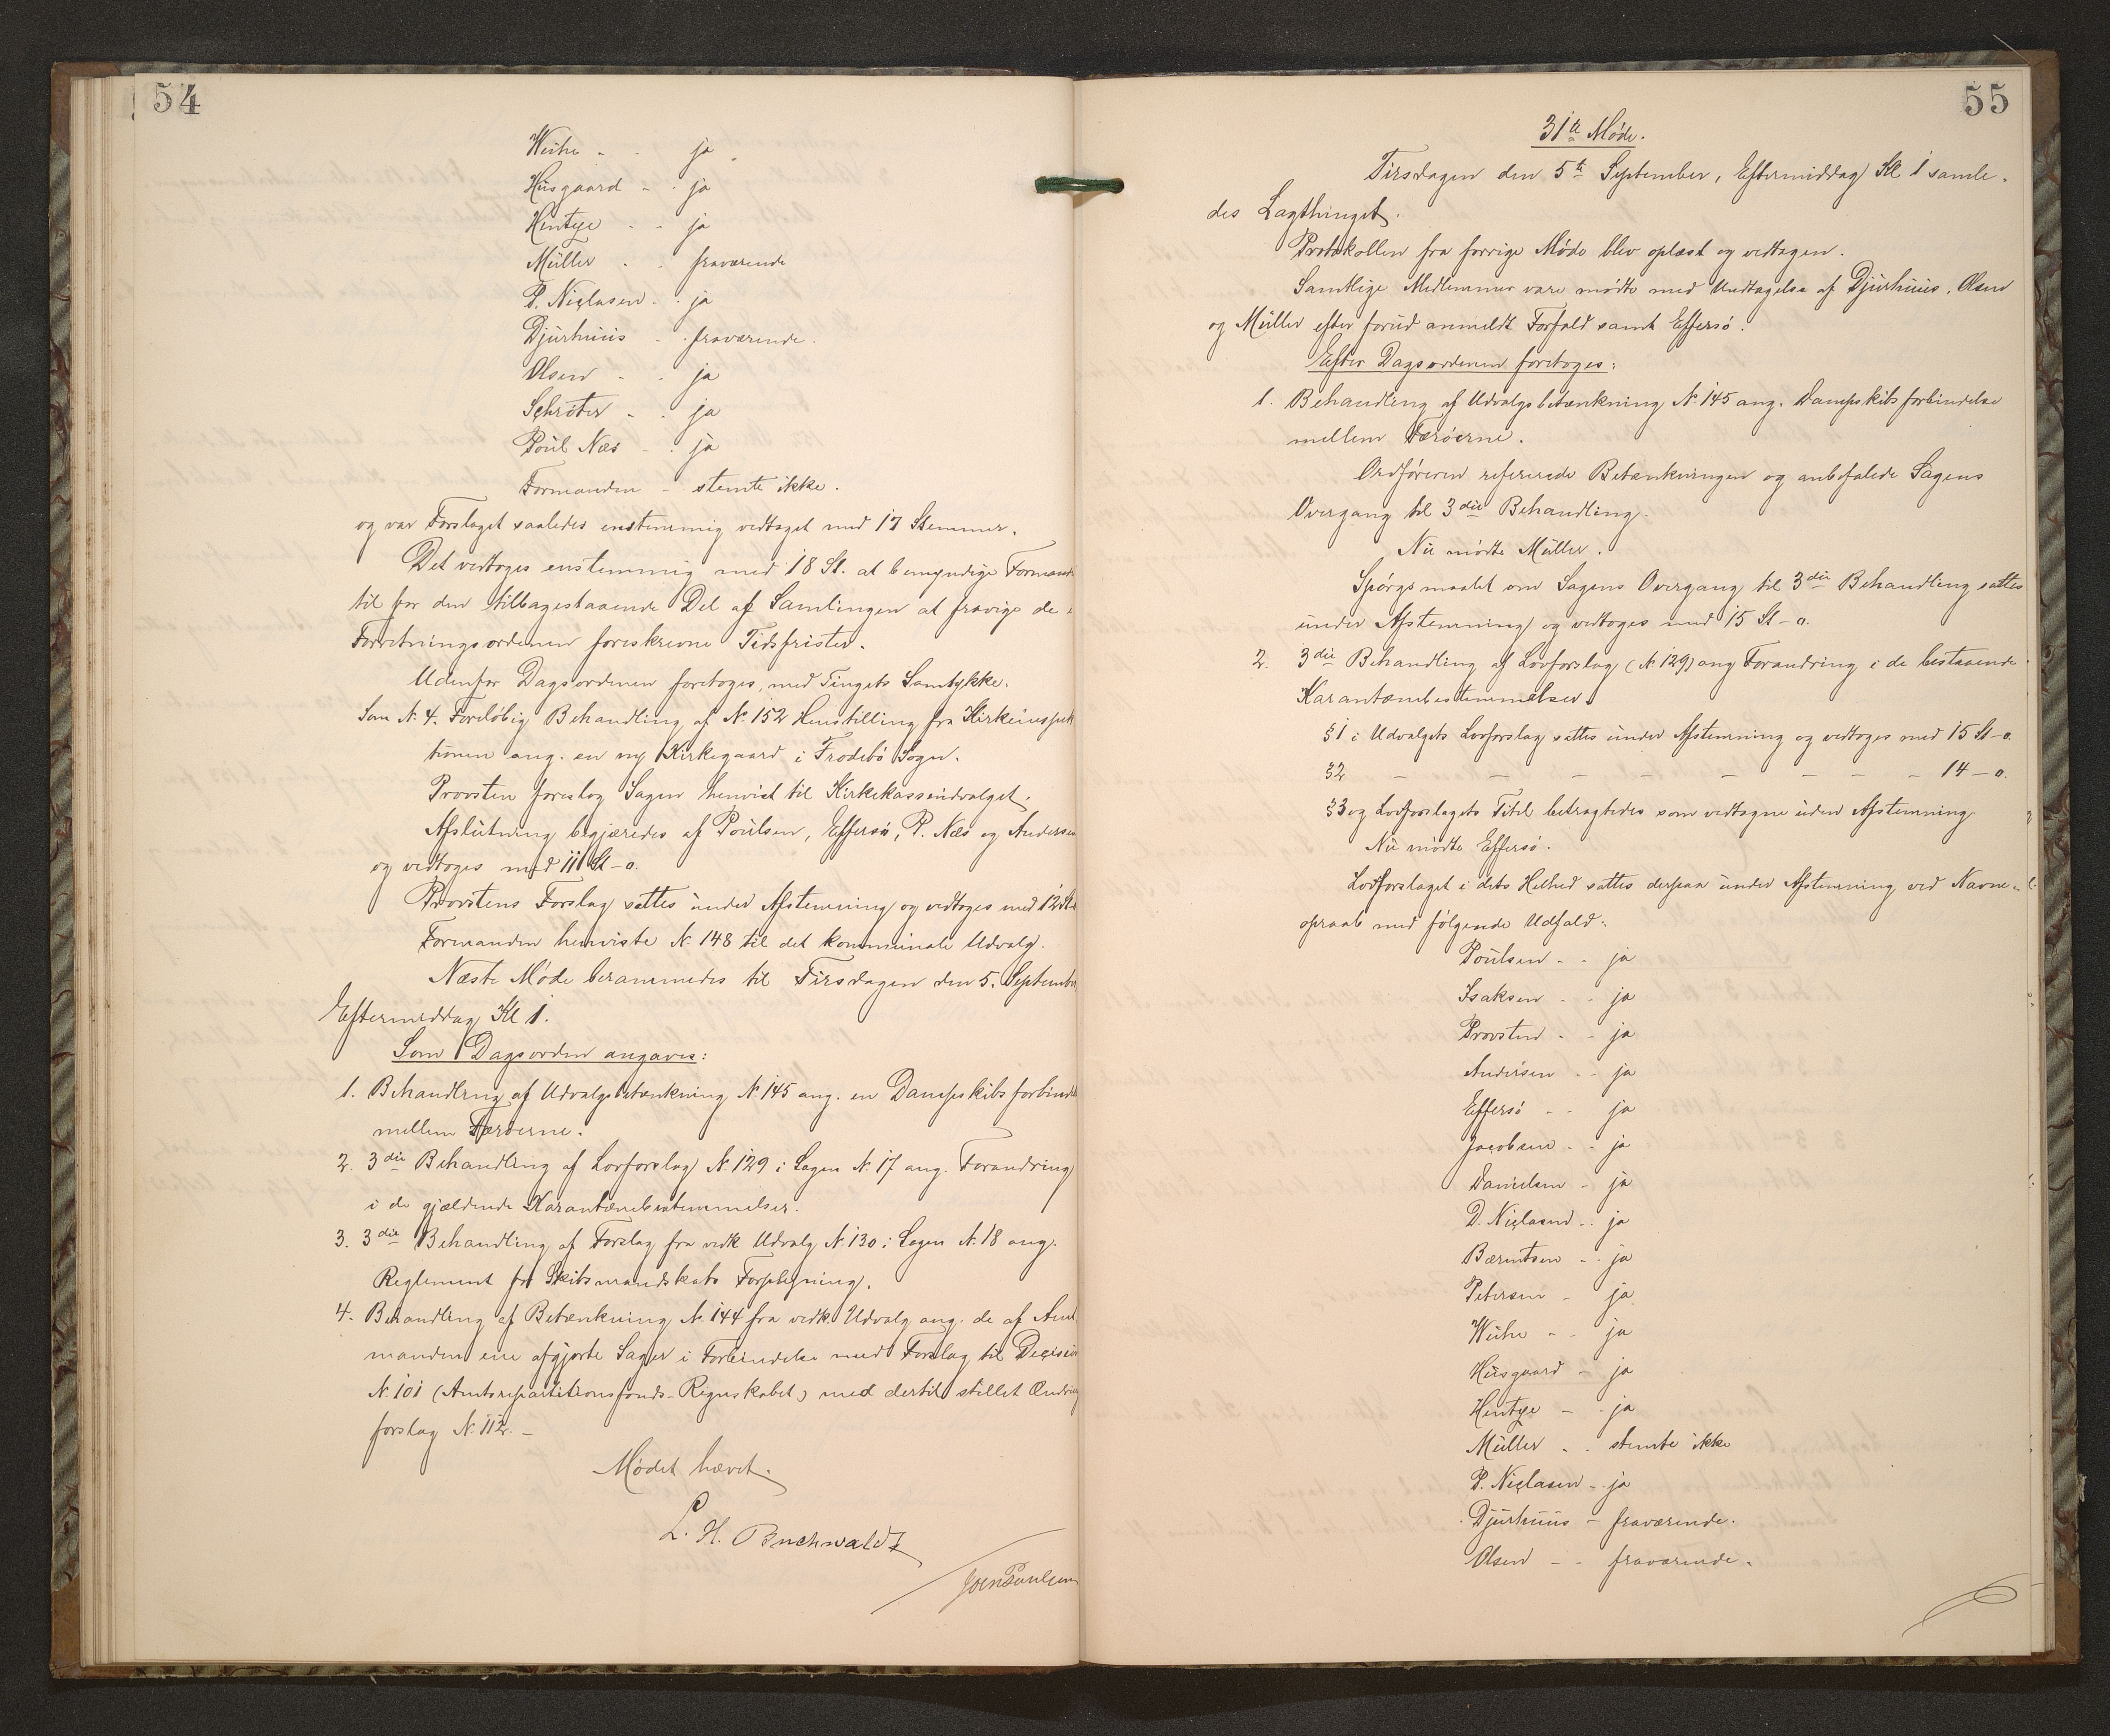 54
Weihe - - ja
Husgaard - - ja
Hentze - - ja
Müller - - fraværende
P. Niclasen - - ja
Djurhuus - - fraværende.
Olsen - - ja
Schrøter - - ja
Poul Næs - - ja
Formanden - stemte ikke.
og var Forslaget saaledes enstemmig vedtaget med 17 Stemmer.
Det vedtoges enstemmig med 18 St. at bemyndige Formand
til for den tilbagestaaende Del af Samlingen at fravige de i
Forretningsordenen foreskrevne Tidsfrister.
Udenfor Dagsordenen foretoges, med Tingets Samtykke.
Som N. 4. Foreløbig Behandling af No 152 Henstilling fra Kirkeinspek
tionen ang. en ny Kirkegaard i Frodebø Sogn.
Provsten foreslog Sagen henvist til Kirkekasseudvalget.
Afslutning begjæredes af Poulsen, Effersø, P. Næs og Andersen
og vedtoges med 11 St - 0.
Provstens Forslag sattes under Afstemning og vedtoges med 12 St
Formanden henviste N. 148 til det kommunale Udvalg.
Næste Møde berammedes til Tirsdagen den 5. September
Eftermiddag Kl 1.
Som Dagsorden angaves:
1. Behandling af Udvalgsbetænkning N. 145 ang. en Dampskibsforbindel
mellem Færøerne.
2. 3die Behandling af Lovforslag N. 129 i Sagen N. 17 ang. Forandring
i de gjældende Karantænebestemmelser.
3. 3die Behandling af Forslag fra vedk. Udvalg N. 130 i Sagen N. 18 ang.
Reglement for Skibsmandskabs Forplejning.
4. Behandling af Betænkning N. 144 fra vedk. Udvalg ang. de af Amt
manden ene afgjorte Sager i Forbindelse med Forslag til Decision
N. 101 (Amtsrepartitionsfonds-Regnskabet) med dertil stillet Ændrings
forslag N. 112. -
Mødet hævet.
L. H. Buchwaldt
Joen Poulsen
55
31te Møde.
Tirsdagen den 5te September, Eftermiddag Kl 1 samle-
des Lagthinget.
Protokollen fra forrige Møde blev oplæst og vedtagen.
Samtlige Medlemmer vare mødte med Undtagelse af Djurhuus, Olsen
og Müller efter forud anmeldt Forfald samt Effersø.
Efter Dagsordenen foretoges:
1. Behandling af Udvalgsbetænkning N. 145 ang. Dampskibsforbindelse
mellem Færøerne.
Ordføreren refererede Betænkningen og anbefalede Sagens
Overgang til 3die Behandling.
Nu mødte Müller.
Spørgsmaalet om Sagens Overgang til 3die Behandling sattes
under Afstemning og vedtoges med 15 St - 0.
2. 3die Behandling af Lovforslag (N. 129) ang Forandring i de bestaaende
Karantænebestemmelser
§1 i Udvalgets Lovforslag sattes under Afstemning og vedtoges med 15 St - 0.
§2 - - - - - - - - 14 - 0.
§3 og Lovforslagets Titel betragtedes som vedtagne uden Afstemning
Nu mødte Effersø.
Lovforslaget i dets Helhed sattes derpaa under Afstemning ved Navne-
opraab med følgende Udfald:
Poulsen - - ja
Isaksen - - ja
Provsten - - ja
Andersen - - ja
Effersø - - ja
Jacobsen - - ja
Danielsen - ja
D. Niclasen - - ja
Bærentsen - - ja
Petersen - ja
Weihe - - ja
Husgaard - ja
Hentze - - ja
Müller - - stemte ikke
P. Niclasen - ja
Djurhuus - fraværende.
Olsen - - fraværende.